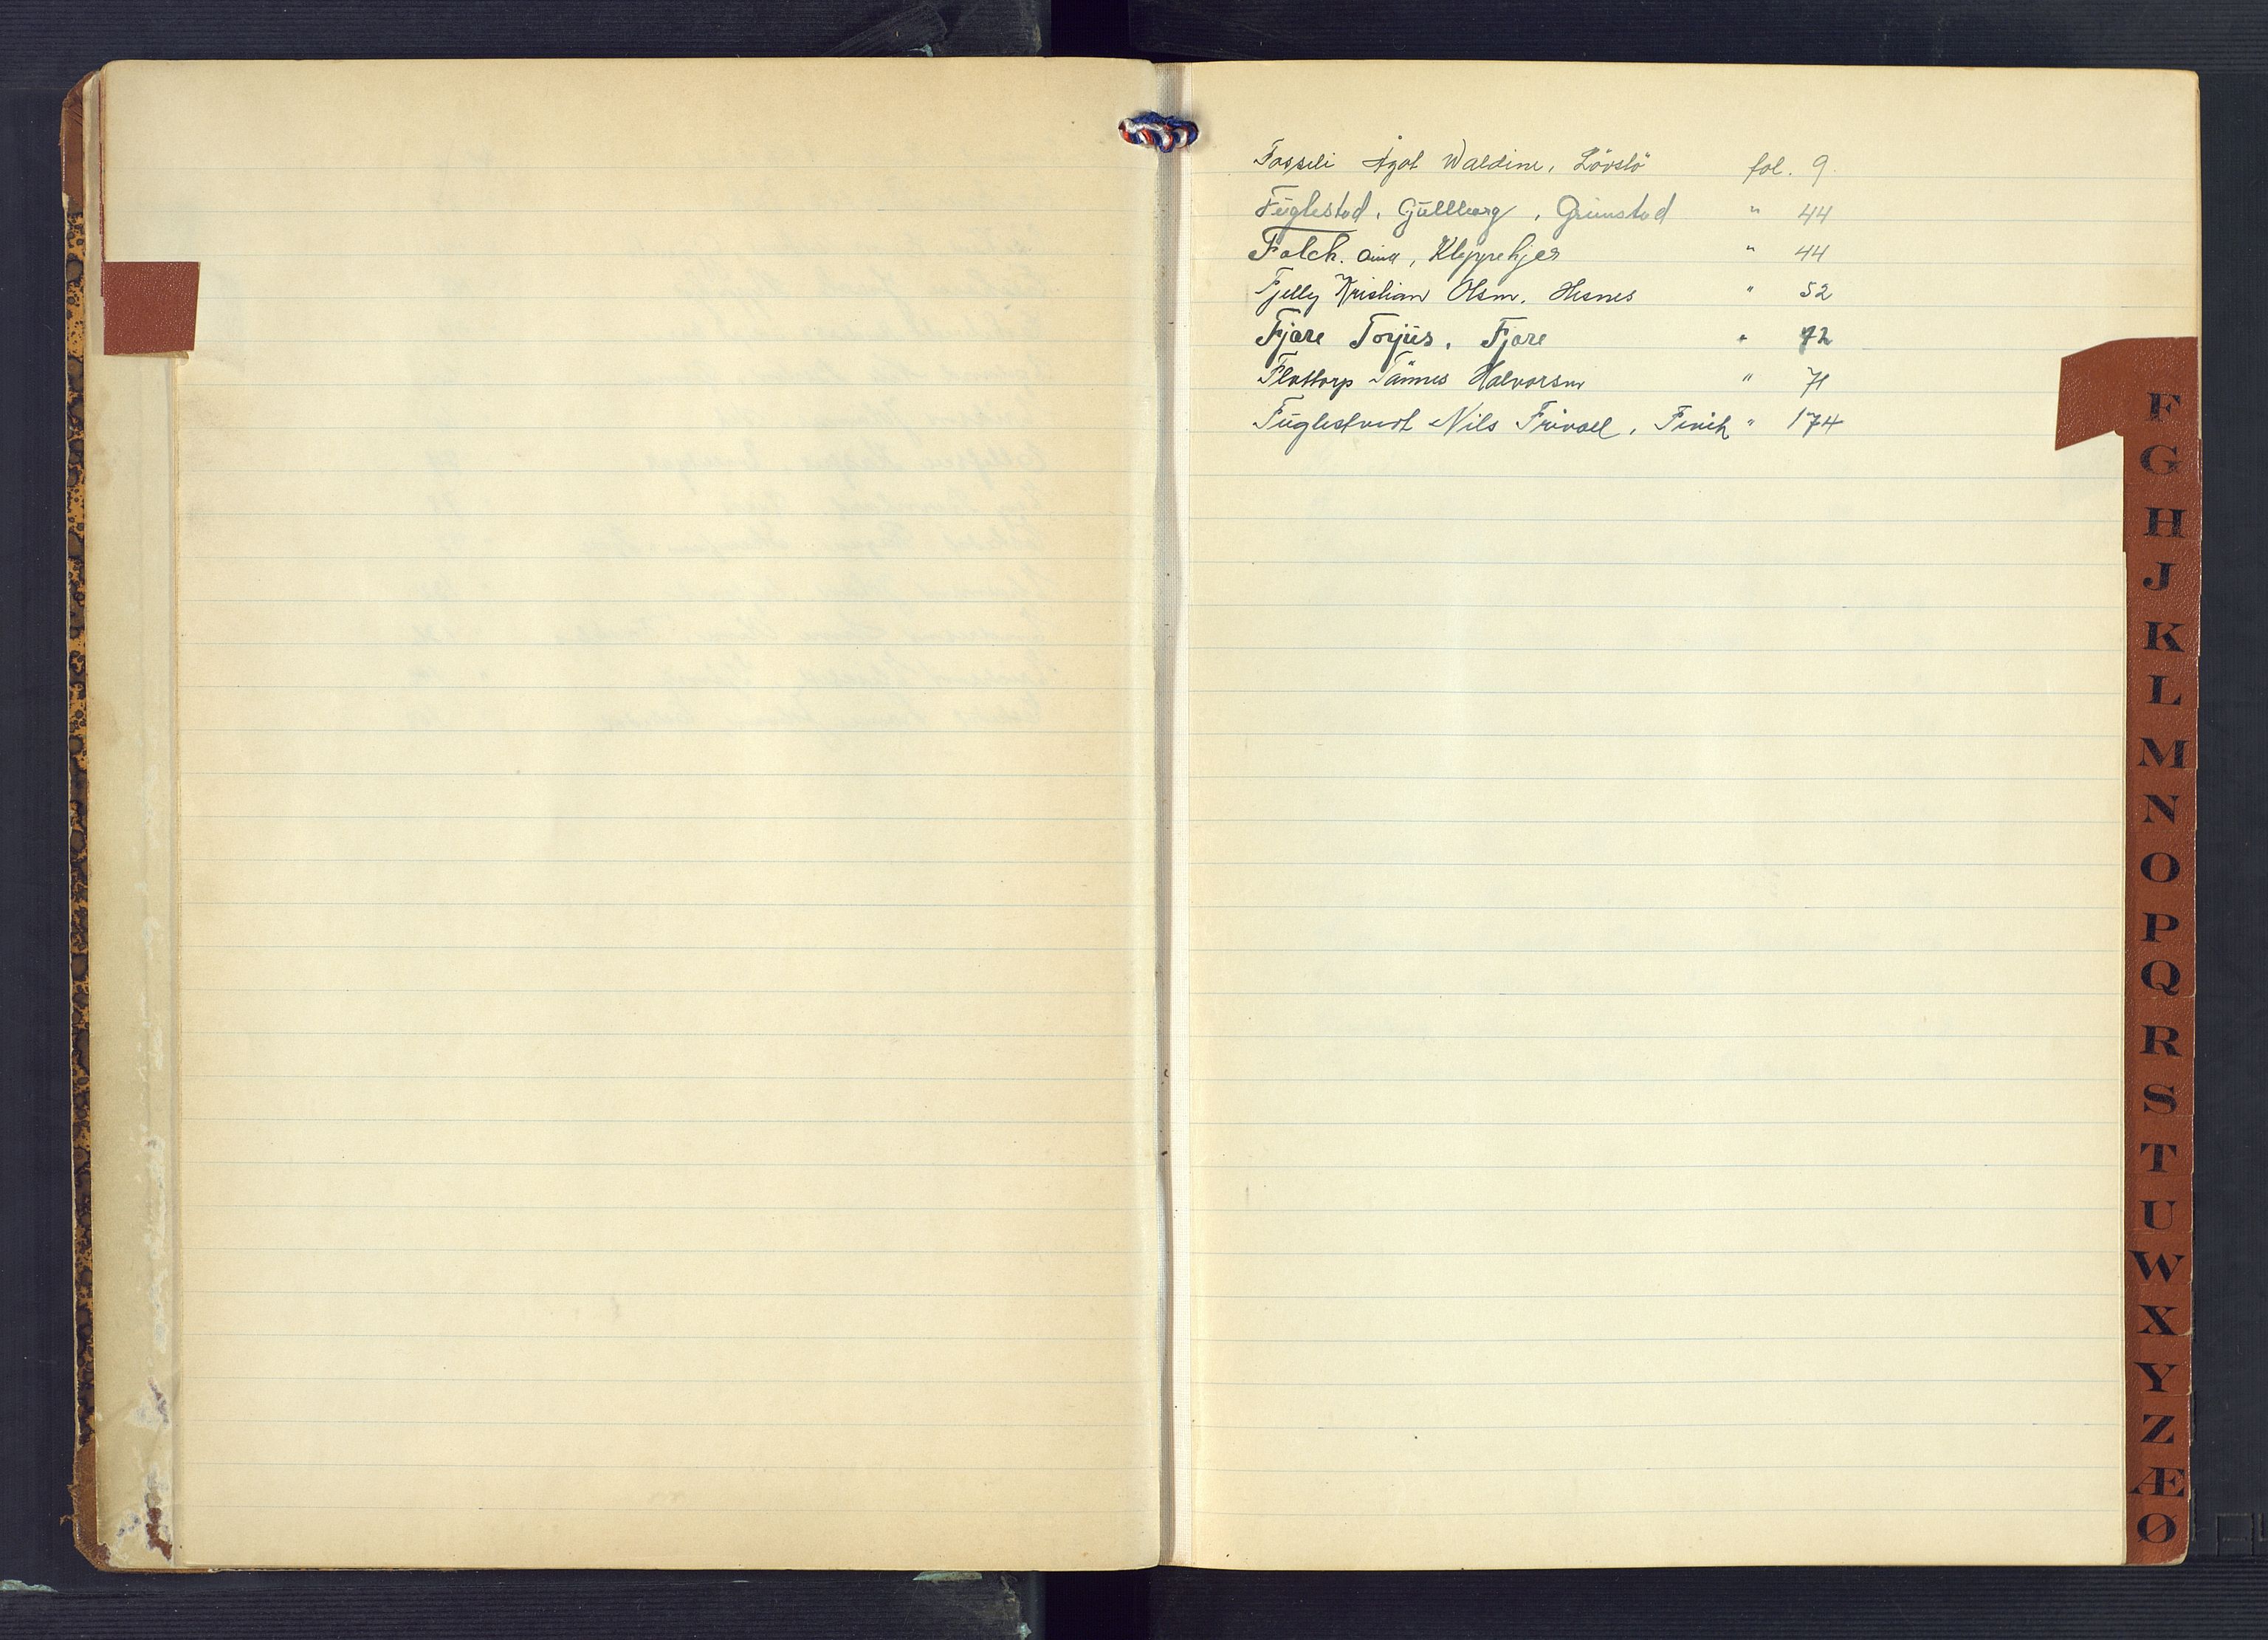 Fosseli Ågot Waldine, Lövstö fol. 9.
Fuglestad, Gullborg, Grimstad " 44
Falch. Aina, Kleppekjer " 44
Fjelly Kristian Olsen. Hesnes " 52
Fjære Torjus. Fjære " 72
Flottorp Tønnes Halvorsen " 71
Fuglestvedt Nils Frivoll, Fevik " 174
F
G
H
J
K
L
M
N
O
P
Q
R
S
T
U
W
X
Y
Z
Æ
Ø